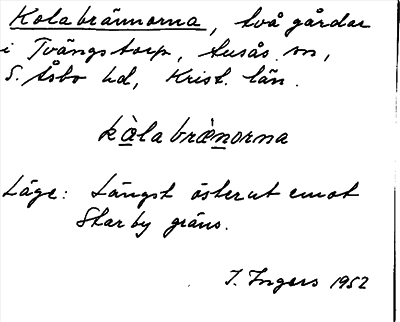 Kolabrännorna, två gårdar
i Tvängstorp, Ausås sn,
S. Åsbo hd, Krist. län.
kàlabrænorna
Läge: Längst österut emot
Starby gräns.
I. Ingers 1952